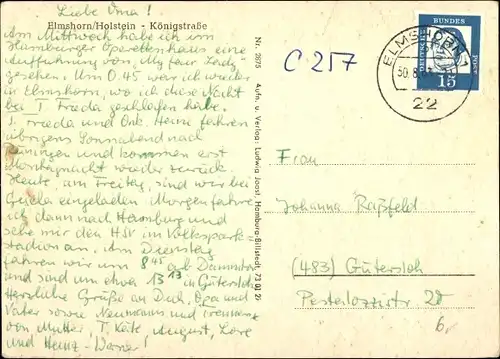 Liebe Oma!
Elmshorn/Holstein - Königstraße
Am Mittwoch habe ich im
Hamburger Operettenhaus eine
Aufführung von „My fair Lady"
gesehen. Um 0.45 war ich wieder
in Elmshorn, wo ich diese Nacht
bei T. Frieda geschlafen habe.
T. Frieda und Onk. Heini fahren
übrigens Sonnabend nach
und kommen erst
Montagnacht wieder zurück.
Heute, am Freitag, sind wir bei
Gisela eingeladen. Morgen fahre
ich dann nach Hamburg und
sehe mir den HSV im Volkspark-
stadion an. Am Dienstag
fahren wir um 8 45 ab Dammtor
und sind um etwa 13 13 in Gütersloh
Herzliche Grüße an Dich, Opa und
Vater sowie Neumanns und
von Mutter, T. Käte, August, Lore
und Heinz-Werner!
Nr. 2875 Aufn. u. Verlag: Ludwig Joost, Hamburg-Billstedt, 73 01 21
C 257
ELMSHORN 1
30.8.
22
DEUTSCHE BUNDESPOST
15
Frau
Johanna Raßfeld
(483) Gütersloh
Pestalozzistr. 20
6,-